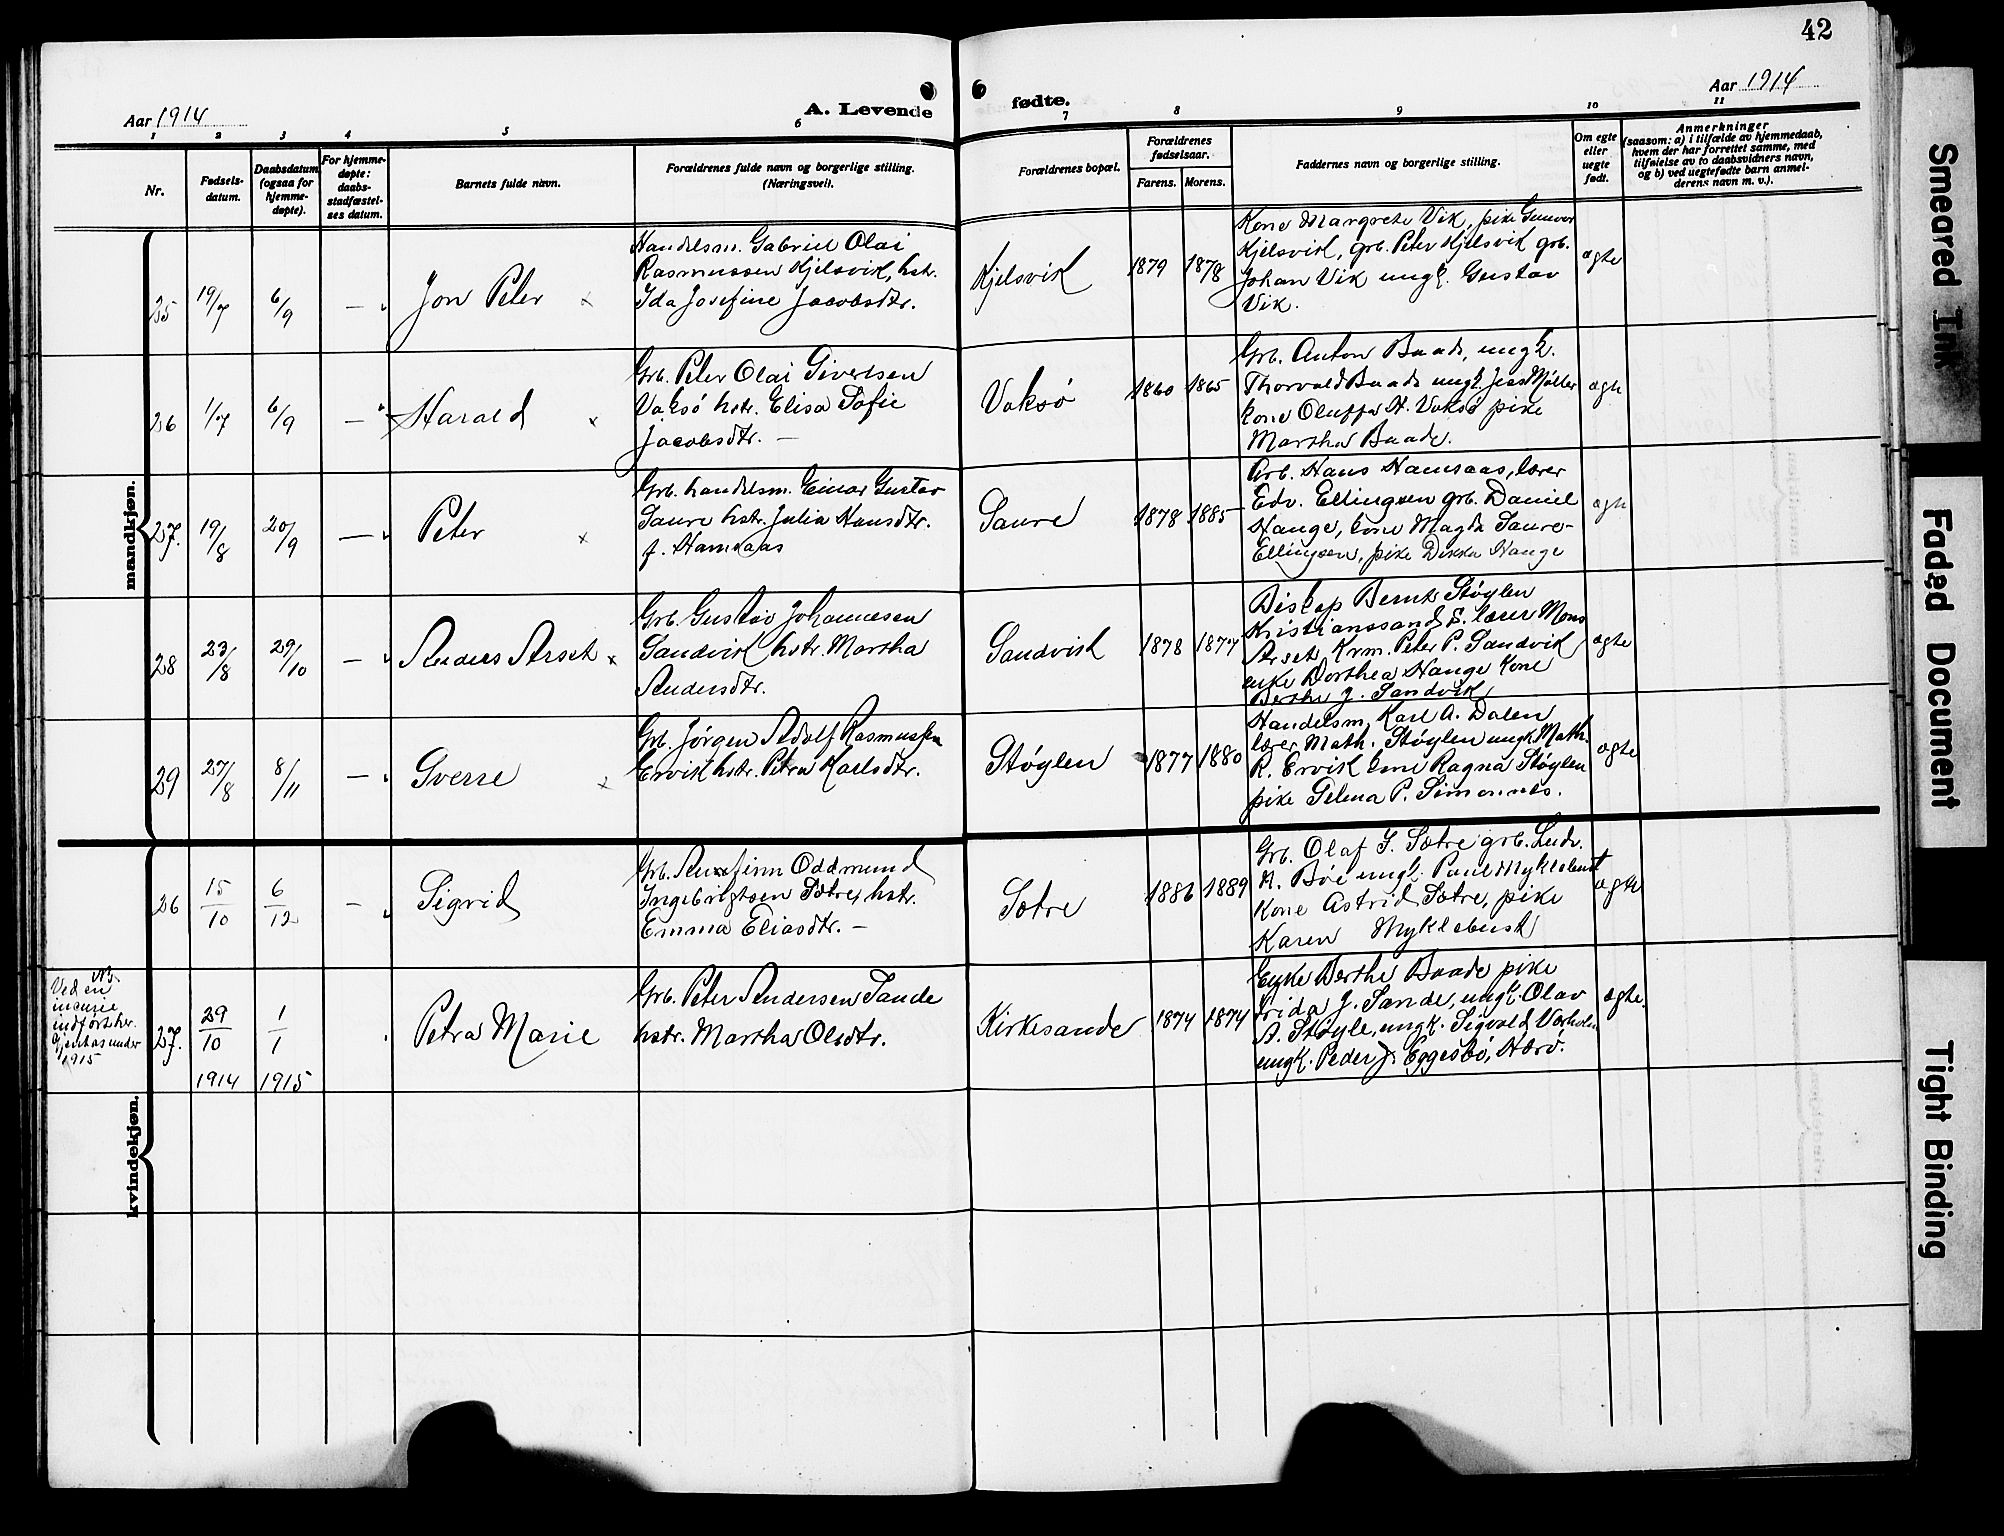 42
Aar 1914
A. Levende
fødte.
Aar 1914
1 2 3 4 5 6 7 8 9 10 11
Nr.
Fødsels-
datum.
Daabsdatum
(ogsaa for
hjemme-
døpte).
For hjemme-
døpte:
daabs-
stadfæstel-
ses datum.
Barnets fulde navn.
Forældrenes fulde navn og borgerlige stilling.
(Næringsvei).
Forældrenes bopæl.
Forældrenes
fødselsaar.
Farens. Morens.
Faddernes navn og borgerlige stilling.
Om egte
eller
uegte
født.
Anmerkninger
(saasom: a) i tilfælde av hjemmedaab,
hvem der har forrettet samme, med
tilføielse av to daabsvidners navn,
og b) ved uegtefødte barn anmel-
derens navn m. v.).
mandkjøn.
25 19/7 6/9 — Jon Peter x
Handelsm. Gabriel Olai
Rasmussen Kjelsvik, hstr.
Ida Josefine Jacobsdtr.
Kjelsvik 1879 1878
Kone Margrete Vik, pike Gunvor
Kjelsvik, grb. Peter Kjelsvik grb.
Johan Vik ungk. Gustav
Vik.
ægte
26 1/7 6/9 — Harald x
Grb. Peter Olai Sivertsen
Vaksø hstr. Elisa Sofie
Jacobsdtr. —
Vaksø 1860 1865
Grb. Anton Baade, ungk.
Thorvald Baade ungk. Jess Møller
kone Oluffa H. Vaksø pike
Martha Baade.
ægte
27. 19/8 20/9 — Peter x
Grb. handelsm. Einar Gustav
Saure hstr. Julia Hansdtr.
f. Hamsaas
Saure 1878 1885
Grb. Hans Hamsaas, lærer
Edv. Ellingsen grb. Daniel
Hauge, kone Magda Saure-
Ellingsen, pike Dikka Hauge
ægte
28 23/8 29/10 — Anders Arset x
Grb. Gustav Johannesen
Sandvik hstr. Martha
Andersdtr.
Sandvik 1878 1877
Biskop Bernt Støylen
Kristianssand S. lærer Mons
Arset, Krm. Peter P. Sandvik
enke Dorthea Hauge Kone
Berthe J. Sandvik
ægte
29 27/8 8/11 — Sverre x
Grb. Jørgen Adolf Rasmussen
Ervik hstr. Petra Karlsdtr.
Støylen 1877 1880
Handelsm. Karl A. Dalen
lærer Math. Støylen ungk. Math.
R. Ervik kone Ragna Støylen
pike Selma P. Simonnes.
ægte
26 15/10 6/12 — Sigrid
Grb. Arnfinn Oddmund
Ingebrigtsen Sætre, hstr.
Emma Eliasdtr. —
Sætre 1886 1889
Grb. Olaf I. Sætre grb. Ludv.
A. Bøe ungk. Paul Myklebust
Kone Astrid Sætre, pike
Karen Myklebust
ægte
NB.
Ved en
incurie
indført her.
Gjentas under
1915
27. 29/10 1914 1/1 1915 Petra Marie
Grb. Peter Andersen Sande
hstr. Martha Olsdtr.
Kirkesande 1874 1874
Enke Berthe Baade pike
Frida J. Sande, ungk. Olav
A. Støyle, ungk. Sigvald Vorholm
ungk. Peder J. Eggesbø, Herø.
ægte.
kvindekjøn.
Smeared Ink
Faded Document
Tight Binding